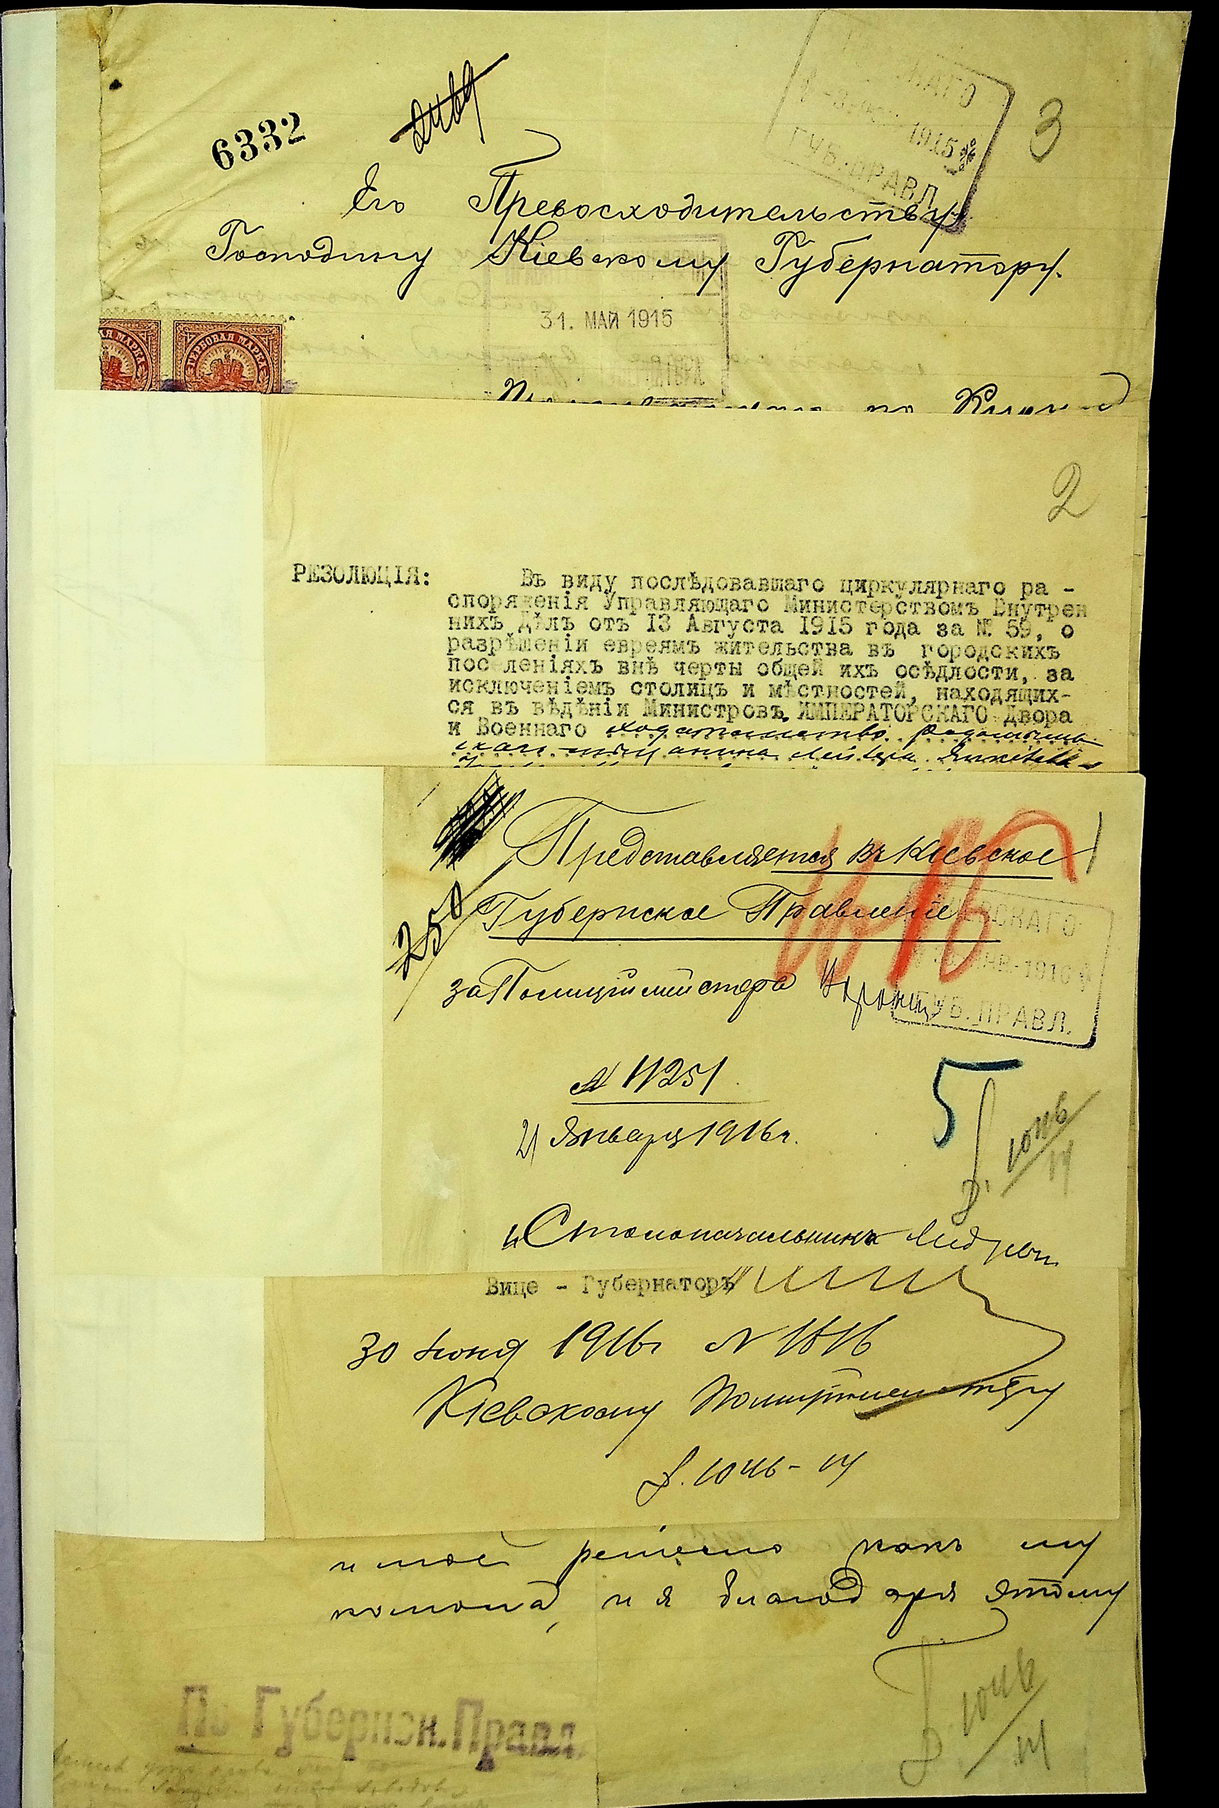 КІЕВСКАГО
1915
ГУБ. ПРАВЛ.
3
6332
Его Превосходительству
Господину Кіевскому Губернатору.
31. МАЙ 1915
ГЕРБОВАЯ МАРКА
2
РЕЗОЛЮЦІЯ:
Въ виду послѣдовавшаго циркулярнаго ра -
споряженія Управляющаго Министерствомъ Внутрен
нихъ Дѣлъ отъ 13 Августа 1915 года за № 59, о
разрѣшеніи евреямъ жительства въ городскихъ
поселеніяхъ внѣ черты общей ихъ осѣдлости, за
исключеніемъ столицъ и мѣстностей, находящих-
ся въ вѣдѣніи Министровъ ИМПЕРАТОРСКАГО Двора
и Военнаго ходатайство
Представляется въ Кіевское
1
250
Губернское Правленіе
1616
КІЕВСКАГО
за Полиціймейстера
ГУБ. ПРАВЛ.
№ 11251
5
21 Января 1916 г.
1046/14
Столоначальникъ
Вице - Губернаторъ
30 Іюня 1916 г № 1616
Кіевскому Полиціймейстеру
1046-14
и мое рѣшено какъ
и я благодаря этому
1046/14
По Губернск. Правл.